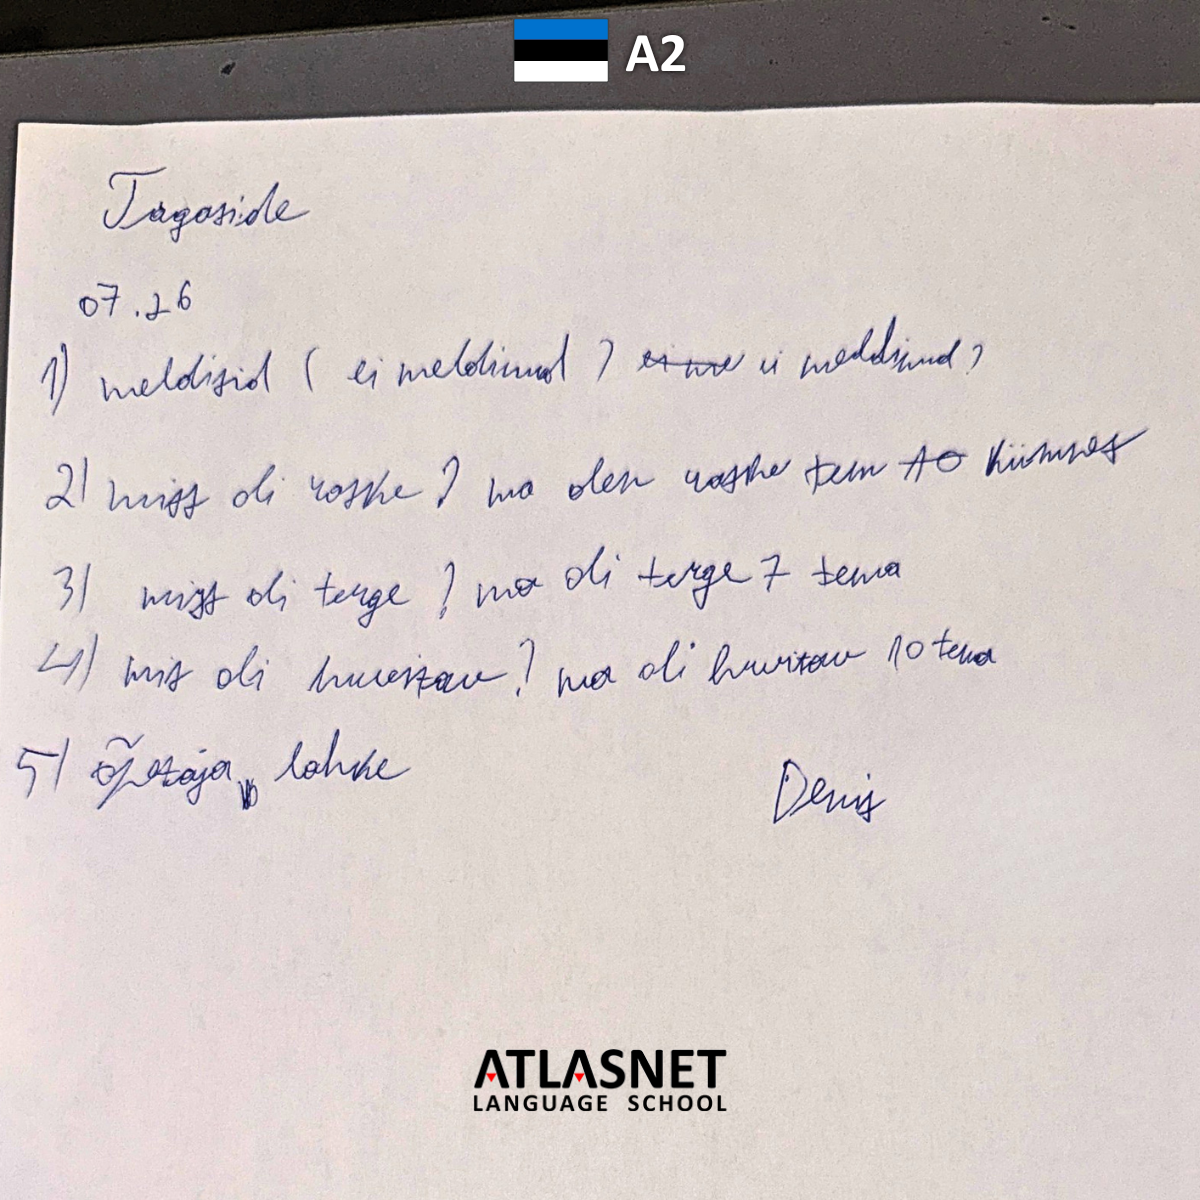 A2
Tagaside
07.26
1) meldisid ( ei meldinud ) ei me ei meldinud ?
2) miss oli raske ? ma olen raske tem 10 kümmes
3) miss oli terge ? ma oli terge 7 tema
4) mis oli huvitav ? ma oli huvitav 10 tema
5) õpetaja lahke
Denis
ATLASNET
LANGUAGE SCHOOL